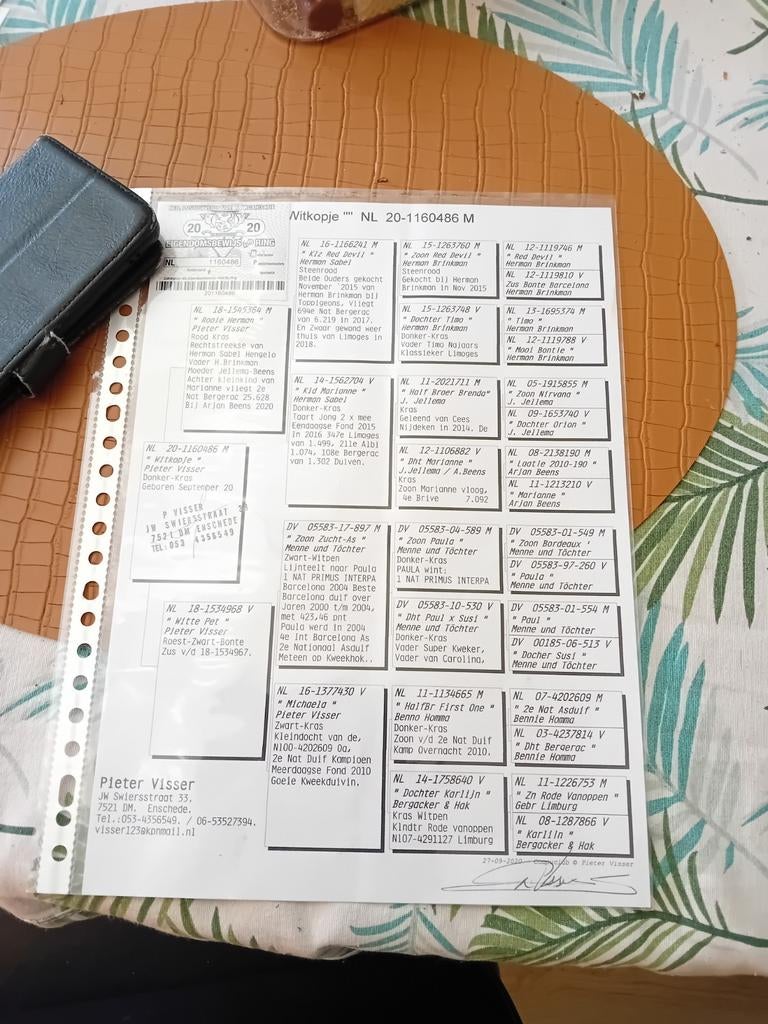 Witkopje "" NL 20-1160486 M
20 20
EIGENDOMSBEWIJS RING
NL 1160486
201160486
NL 18-1545364 M
" Rooie Herman "
Pieter Visser
Rood Kras
Rechtstreekse van
Herman Sabel Hengelo
Vader H.Brinkman
Moeder Jellema-Beens
Achter kleinkind van
Marianne vliegt 2e
Nat Bergerac 25.628
Bij Arjan Beens 2020
NL 20-1160486 M
" Witkopje "
Pieter Visser
Donker-Kras
Geboren September 20
P VISSER
JW SWIERSSTRAAT
7521 DM ENSCHEDE
TEL: 053 4356549
NL 18-1534968 V
" Witte Pet "
Pieter Visser
Roest-Zwart-Bonte
Zus v/d 18-1534967.
NL 16-1166241 M
" Klz Red Devil "
Herman Sabel
Steenrood
Beide Ouders gekocht
November `2015 van
Herman Brinkman bij
Toppigeons, Vliegt
694e Nat Bergerac
van 6.219 in 2017.
En Zwaar gewand weer
thuis van Limoges in
2018.
NL 14-1562704 V
" Kid Marianne "
Herman Sabel
Donker-Kras
Taart Jong 2 x mee
Eendaagse Fond 2015
In 2016 347e Limoges
van 1.499, 211e Albi
1.074, 108e Bergerac
van 1.302 Duiven.
DV 05583-17-897 M
" Zoon Zucht-As "
Menne und Töchter
Zwart-Witpen
Lijnteelt naar Paula
1 NAT PRIMUS INTERPA
Barcelona 2004 Beste
Barcelona duif over
Jaren 2000 t/m 2004,
met 423,46 pnt
Paula werd in 2004
4e Int Barcelona As
2e Nationaal Asduif
Meteen op Kweekhok..
NL 16-1377430 V
" Michaela "
Pieter Visser
Zwart-Kras
Kleindocht van de,
N100-4202609 Oa,
2e Nat Duif Kampioen
Meerdaagse Fond 2010
Goeie Kweekduivin.
NL 15-1263760 M
" Zoon Red Devil "
Herman Brinkman
Steenrood
Gekocht bij Herman
Brinkman in Nov 2015
NL 15-1263748 V
" Dochter Timo "
Herman Brinkman
Donker-Kras
Vader Timo Najaars
Klassieker Limoges
NL 11-2021711 M
" Half Broer Brenda"
J. Jellema
Kras
Geleend van Cees
Nijdeken in 2014. De
NL 12-1106882 V
" Dht Marianne "
J.Jellema / A.Beens
Kras
Zoon Marianne vloog,
4e Brive 7.092
DV 05583-04-589 M
" Zoon Paula "
Menne und Töchter
Donker-Kras
PAULA wint:
1 NAT PRIMUS INTERPA
DV 05583-10-530 V
" Dht Paul x Susi "
Menne und Töchter
Donker-Kras
Vader Super Kweker,
Vader van Carolina,
NL 11-1134665 M
" HalfBr First One "
Benno Homma
Donker-Kras
Zoon v/d 2e Nat Duif
Kamp Overnacht 2010.
NL 14-1758640 V
" Dochter Karlijn "
Bergacker & Hak
Kras Witpen
Klndtr Rode vanoppen
Nl07-4291127 Limburg
NL 12-1119746 M
" Red Devil "
Herman Brinkman
NL 12-1119810 V
Zus Bonte Barcelona
Herman Brinkman
NL 13-1695374 M
" Timo "
Herman Brinkman
NL 12-1119788 V
" Mooi Bontje "
Herman Brinkman
NL 05-1915855 M
" Zoon Nirvana "
J. Jellema
NL 09-1653740 V
" Dochter Orion "
J. Jellema
NL 08-2138190 M
" Laatie 2010-190 "
Arjan Beens
NL 11-1213210 V
" Marianne "
Arjan Beens
DV 05583-01-549 M
" Zoon Bordeaux '
Menne und Töchter
DV 05583-97-260 V
" Paula "
Menne und Töchter
DV 05583-01-554 M
" Paul "
Menne und Töchter
DV 00185-06-513 V
" Docher Susi "
Menne und Töchter
NL 07-4202609 M
" 2e Nat Asduif "
Bennie Homma
NL 03-4237814 V
" Dht Bergerac "
Bennie Homma
NL 11-1226753 M
" Zn Rode Vanoppen "
Gebr Limburg
NL 08-1287866 V
" Karlijn "
Bergacker & Hak
Pieter Visser
JW Swiersstraat 33.
7521 DM. Enschede.
Tel.:053-4356549. / 06-53527394.
visser123@kpnmail.nl
27-09-2020 Compuclub © Pieter Visser